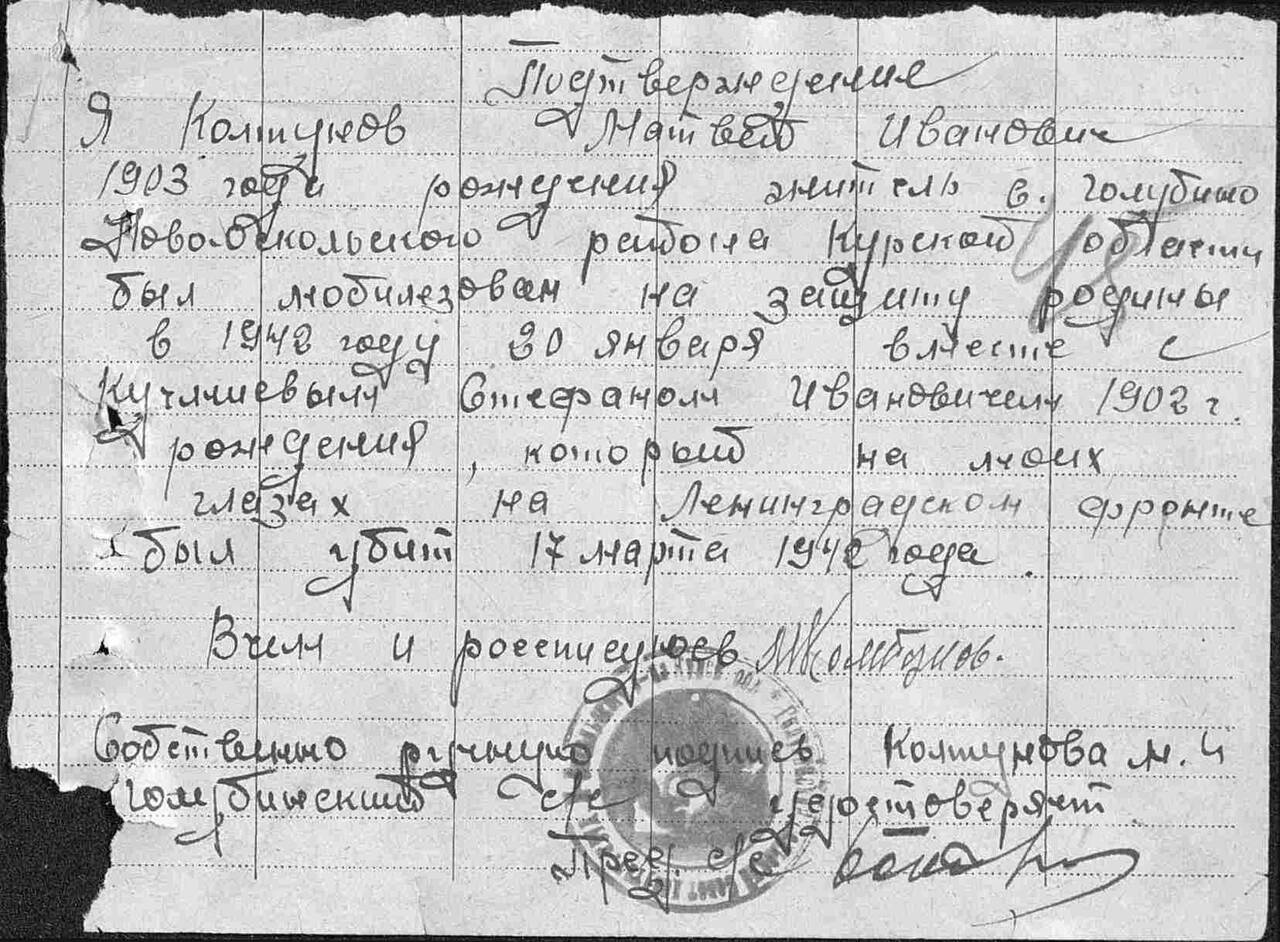 Подтверждения
Я Колтунов Матвей Иванович
1903 года рождения житель с. голубино
Ново.Оскольского района Курской области
был мобилезован на защиту родины
в 1942 году 20 января вместе с
Стефаном Ивановичем 1902 г.
рождения, который на моих
глазах на Ленинградском фронте
был убит 17 марта 1942 года.
В чем и россписуюсь МКолтунов.
Собственно ручную подпись Колтунова м. и
голубинский с/с удостоверяет
Пред. с/с